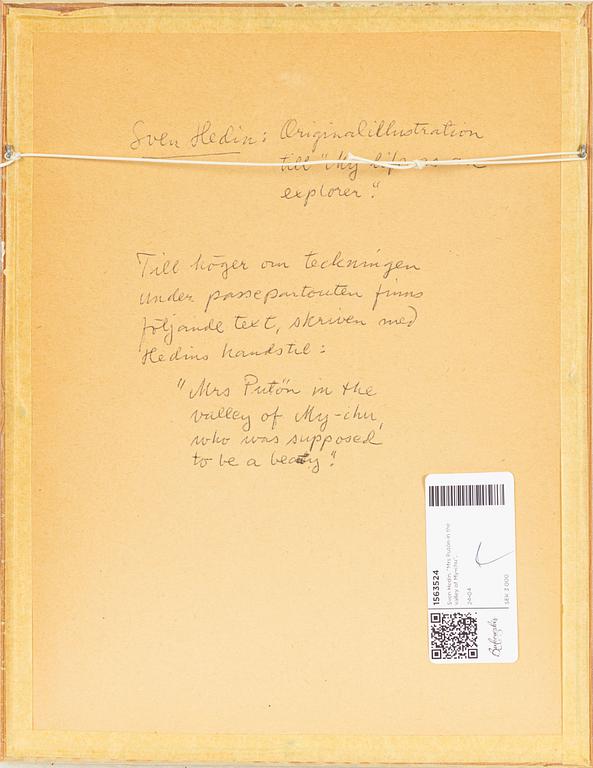 Sven Hedin: Originalillustration
till "My life as an
explorer".
Till höger om teckningen
under passepartouten finns
följande text, skriven med
Hedins handstil:
"Mrs Putön in the
valley of My-chu,
who was supposed
to be a beaty".
1563524
Sven Hedin, "Mrs Putön in the
Valley of Mychu".
SEK 3 000
Bukowskis